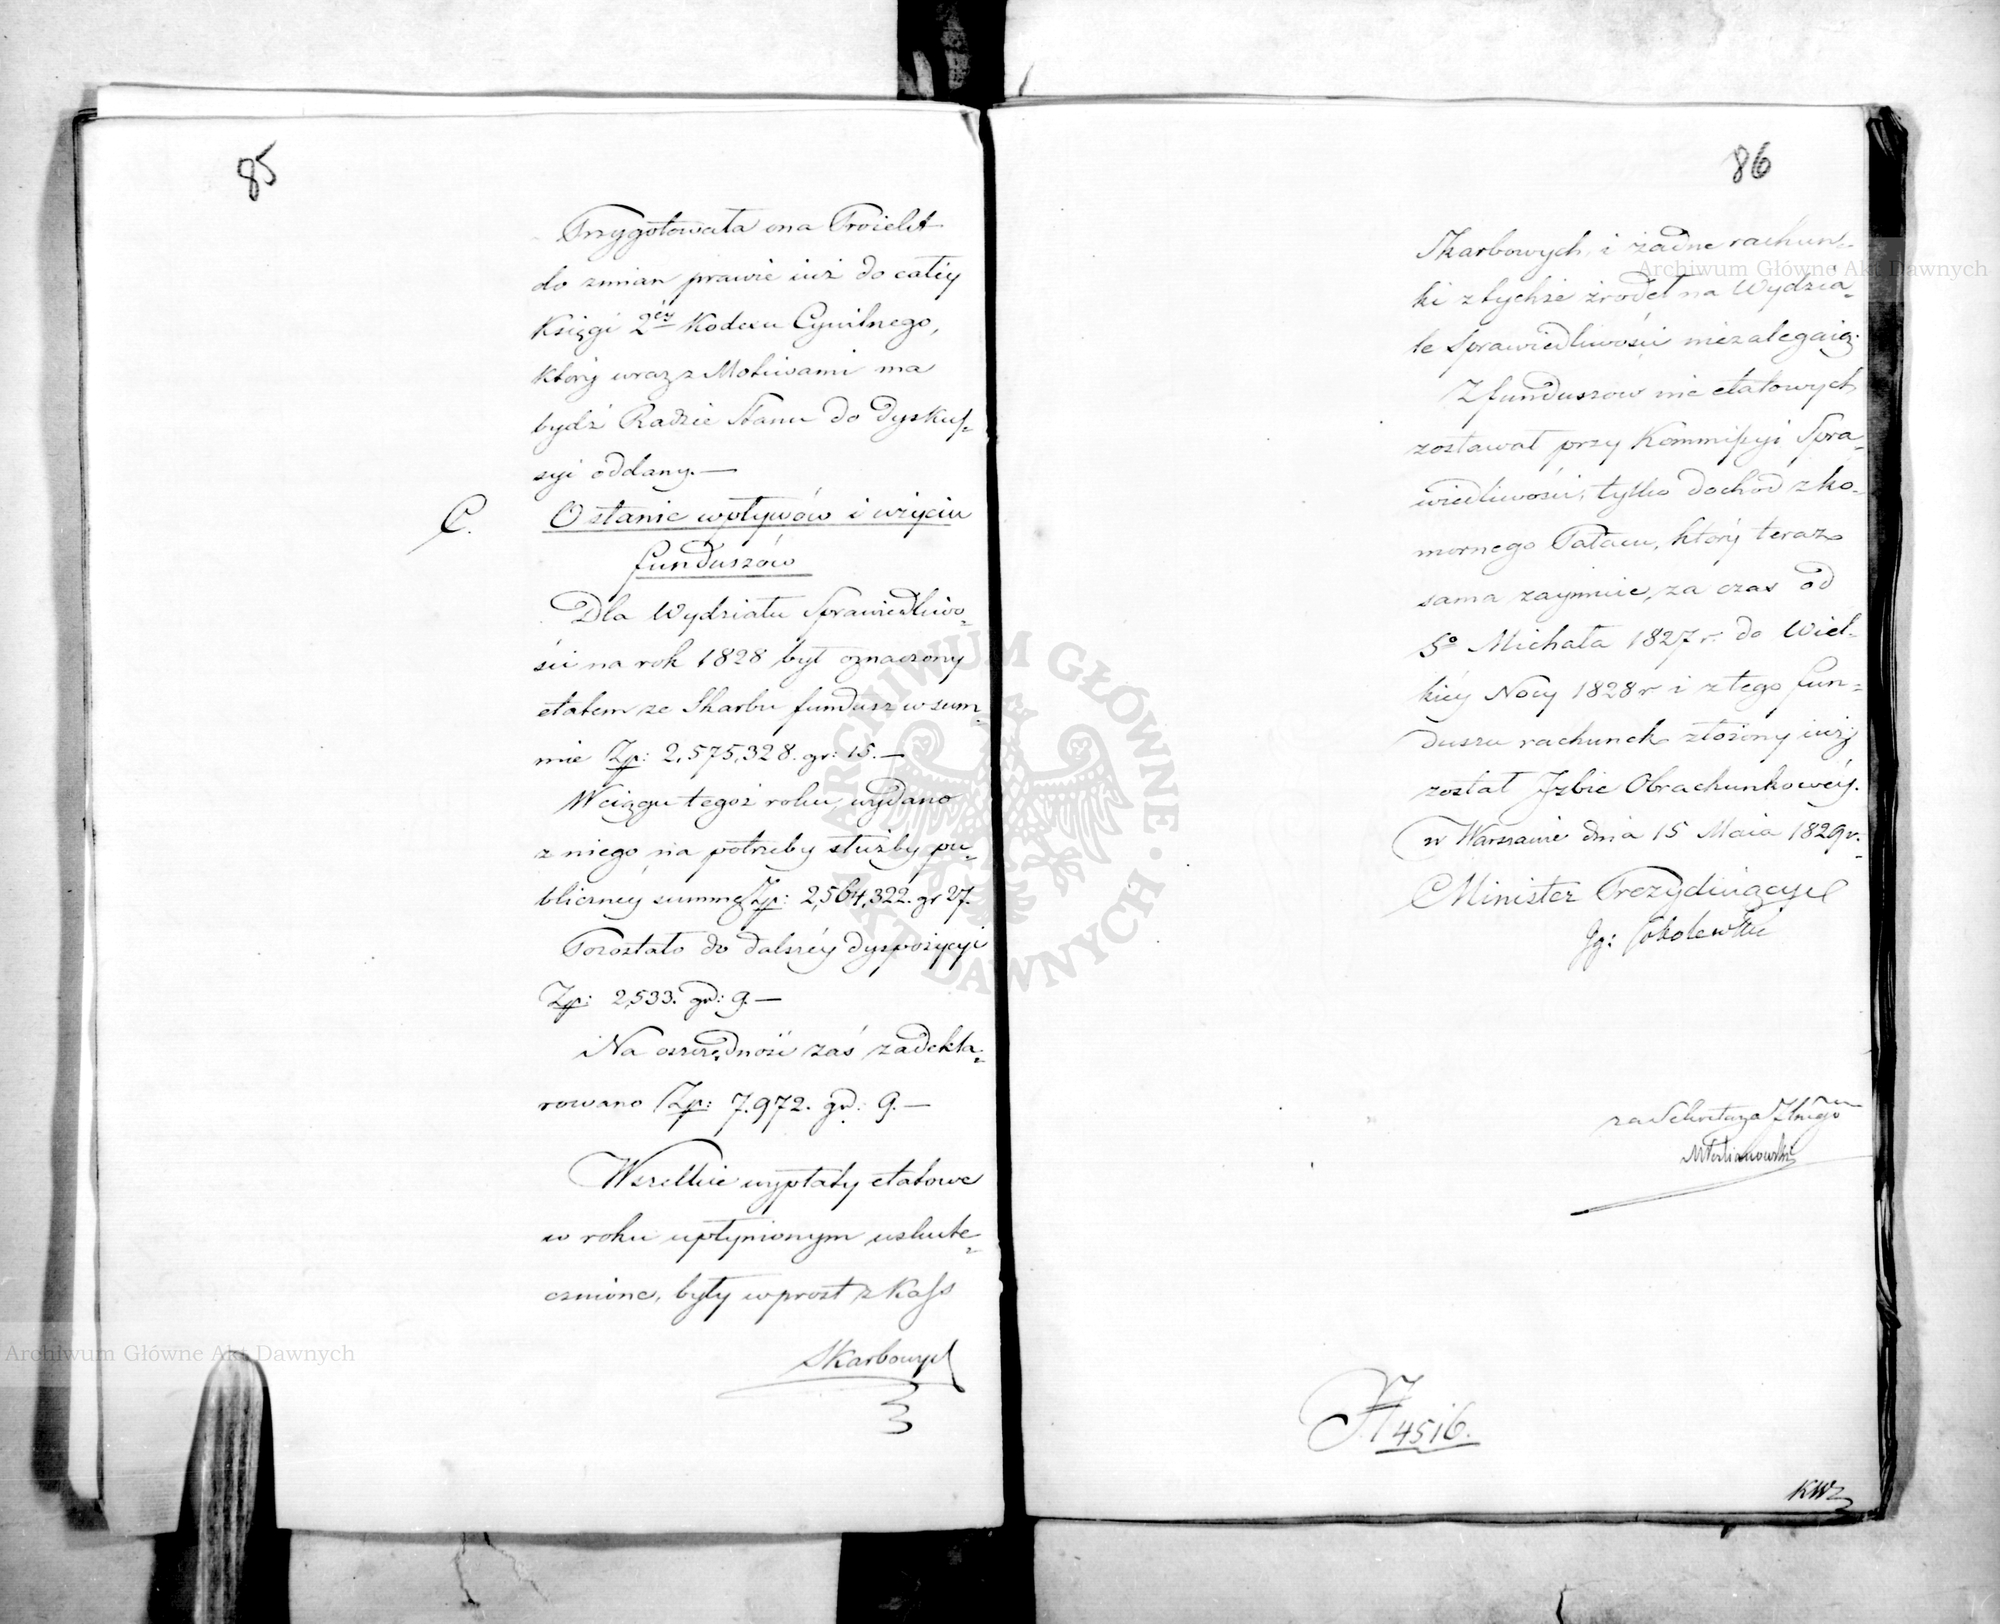 85
Przygotowała ona Proiekt
do zmian prawie iuż do całey
Księgi 2éy Kodexu Cywilnego,
który wraz z Motiwami ma
bydź Radzie Stanu do Dyskus=
syi oddany. —
C. O stanie wpływów i użyciu
funduszów
Dla Wydziału Sprawiedliwo=
ści na rok 1828 był oznaczony
etatem ze Skarbu fundusz w sum=
mie Zp: 2,575,328. gr: 15. —
W ciągu tegoż roku wydano
z niego na potrzeby służby pu=
bliczney summę Zp: 2,564,322. gr 27.
Pozostało do dalszéy dyspozycyi
Zp: 2,533. gr: 9. —
Na oszczędności zaś zadekla=
rowano Zp: 7.972. gr: 9. —
Wszelkie wypłaty etatowe
w roku upłynionym uskute=
cznione, były wprost z Kass
Skarbowych
86
Skarbowych, i żadne rachun=
ki z tychże źrodeł na Wydzia=
le Sprawiedliwości niezalegaią.
Z funduszow nie etatowych
zostawał przy Kommissyi Spra=
wiedliwości, tylko dochod z ko=
mornego Pałacu, który teraz
sama zaymuie, za czas od
So Michała 1827 r. do Wiel=
kiéy Nocy 1828 r i z tego fun=
duszu rachunek złożony iuż
został Izbie Obrachunkowéy.
w Warszawie dnia 15 Maia 1829 r.
Minister Prezyduiący
Sobolewski
za Sekretarza
4516.
Archiwum Główne Akt Dawnych
Archiwum Główne Akt Dawnych
ARCHIWUM GŁÓWNE AKT DAWNYCH